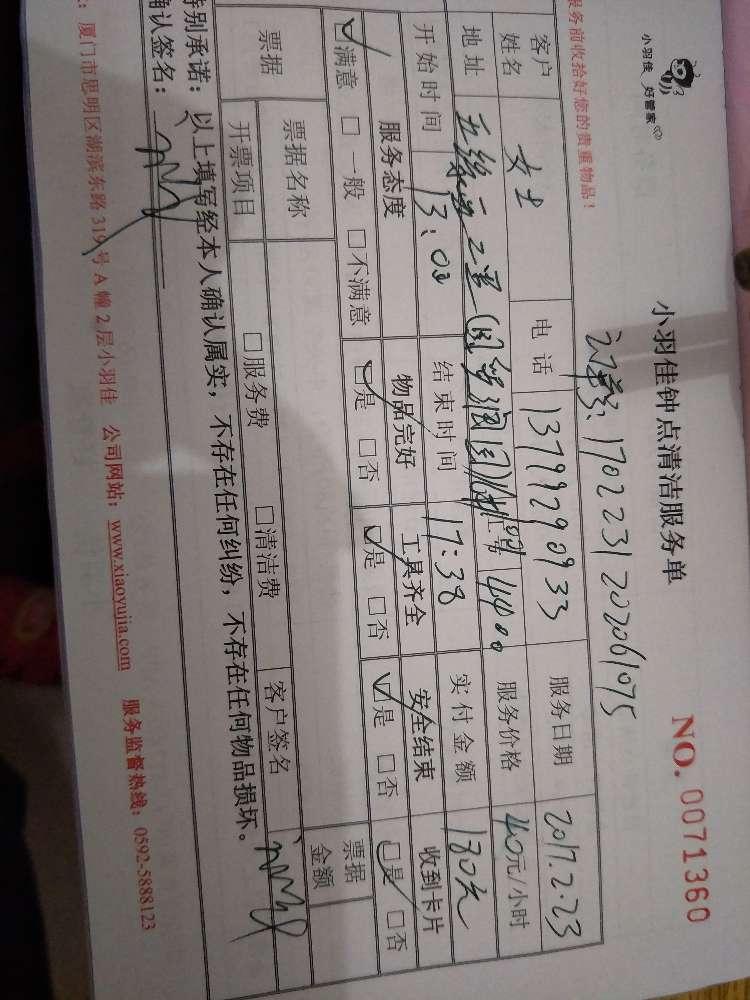 小羽佳 好管家
服务前收拾好您的贵重物品！
小羽佳钟点清洁服务单
NO. 0071360
订单号：170223120206 1075
客户姓名 女士 电话 13799290933 服务日期 2017.2.23
地址 2层 工号 4400 服务价格 40元/小时
开始时间 13:02 结束时间 17:38 实付金额 180元
服务态度 物品完好 工具齐全 安全结束 收到卡片
☑满意 □一般 □不满意 ☑是 □否 ☑是 □否 ☑是 □否 ☑是 □否
票据 票据名称 票据金额
开票项目 □服务费 □清洁费 客户签名
特别承诺：以上填写经本人确认属实，不存在任何纠纷，不存在任何物品损坏。
确认签名：
：厦门市思明区湖滨东路319号A幢2层小羽佳 公司网站：www.xiaoyujia.com 服务监督热线：0592-5888123